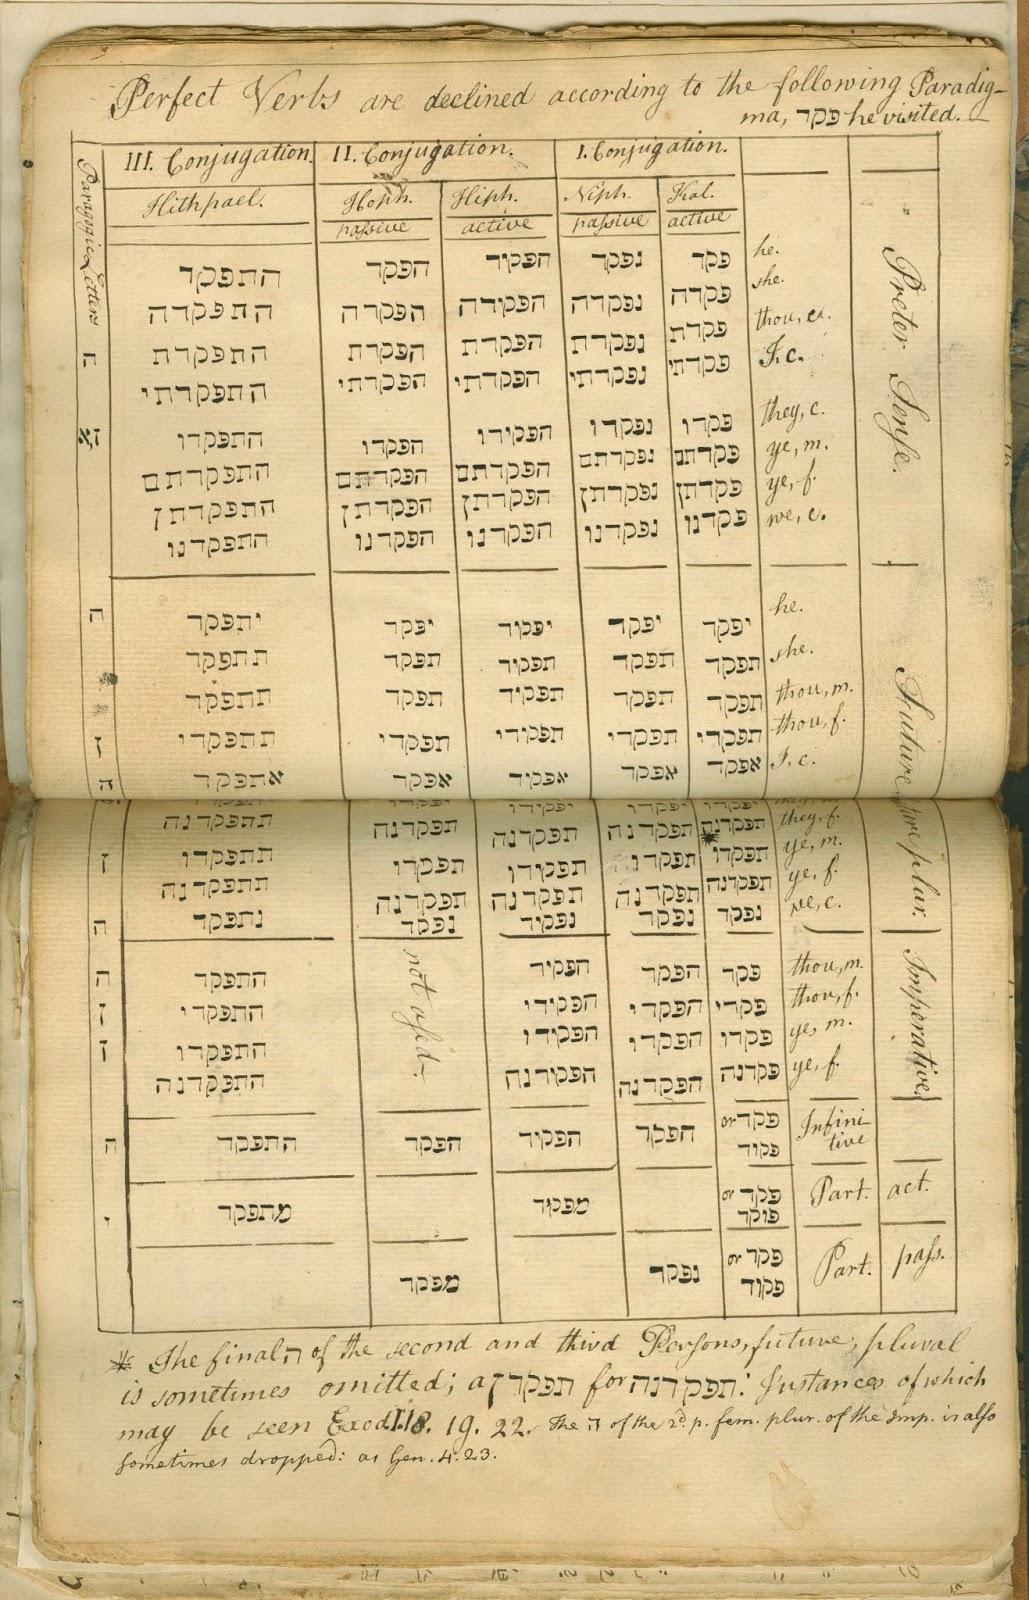 Perfect Verbs are declined according to the following Paradig-
ma, פקד he visited.
Paragogic Letters III. Conjugation. II. Conjugation. I. Conjugation.
Hithpael. Hoph. Hiph. Niph. Kal.
passive active passive active
Preter Tense.
התפקד הפקד הפקיד נפקד פקד he.
התפקדה הפקדה הפקידה נפקדה פקדה she.
ה התפקדת הפקדת הפקדת נפקדת פקדת thou,
התפקדתי הפקדתי הפקדתי נפקדתי פקדתי I. c.
התפקדו הפקדו הפקידו נפקדו פקדו they, c.
התפקדתם הפקדתם הפקדתם נפקדתם פקדתם ye, m.
התפקדתן הפקדתן הפקדתן נפקדתן פקדתן ye, f.
התפקדנו הפקדנו הפקדנו נפקדנו פקדנו we, c.
Future
ה יתפקד יפקד יפקיד יפקד יפקד he.
תתפקד תפקד תפקיד תפקד תפקד she.
תתפקד תפקד תפקיד תפקד תפקד thou, m.
ן תתפקדי תפקדי תפקידי תפקדי תפקדי thou, f.
ה אתפקד אפקד אפקיד אפקד אפקד I. c.
plur.
תתפקדנה תפקדנה תפקדנה תפקדנה תפקדנה they, f.
ן תתפקדו תפקדו תפקידו תפקדו תפקדו ye, m.
תתפקדנה תפקדנה תפקדנה תפקדנה תפקדנה ye, f.
ה נתפקד נפקד נפקיד נפקד נפקד we, c.
Imperative.
ה התפקד not used. הפקיד הפקד פקד thou, m.
ן התפקדי הפקידי הפקדי פקדי thou, f.
ן התפקדו הפקידו הפקדו פקדו ye, m.
התפקדנה הפקדנה הפקדנה פקדנה ye, f.
ה התפקד הפקד הפקיד הפקד פקד or Infini-
פקוד tive
י מתפקד מפקיד פקד or Part. act.
פוקד
מפקד נפקד פקד or Part. pass.
פקוד
* The final ה of the second and third Persons, future, plural
is sometimes omitted; as תפקדן for תפקדנה: Instances of which
may be seen Exod. 1. 18. 19. 22. The ה of the 2d. p. fem. plur. of the Imp. is also
sometimes dropped: as Gen. 4. 23.